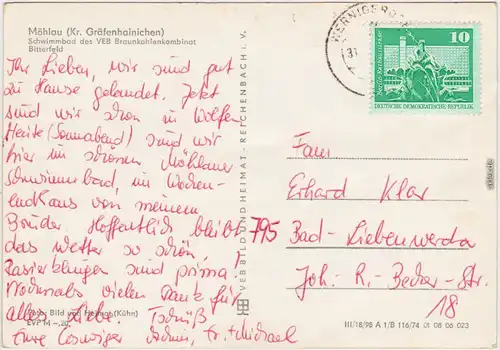 Möhlau (Kr. Gräfenhainichen)
Schwimmbad des VEB Braunkohlenkombinat
Bitterfeld
Ihr Lieben, wir sind gut
zu Hause gelandet. Jetzt
sind wir schon in Wolfen
Heute (Sonnabend) sind wir
hier im schönen Möhlauer
Schwimmbad, im Wochen-
endhaus von meinem
Bruder. Hoffentlich bleibt
das Wetter so schön
Rasierklingen sind prima!
Nochmals vielen Dank für
alles Liebe. Tschüß
Eure Coswiger
Foto: Bild und Heimat (Kühn)
EVP M -,20
VEB BILD UND HEIMAT · REICHENBACH i. V.
WERNIGERODE
10
DEUTSCHE DEMOKRATISCHE REPUBLIK
Fam
Erhard Klar
795 Bad-Liebenwerda
Joh.-R.-Becher-Str.
18
III/18/98 A 1/B 116/74 01 08 06 023